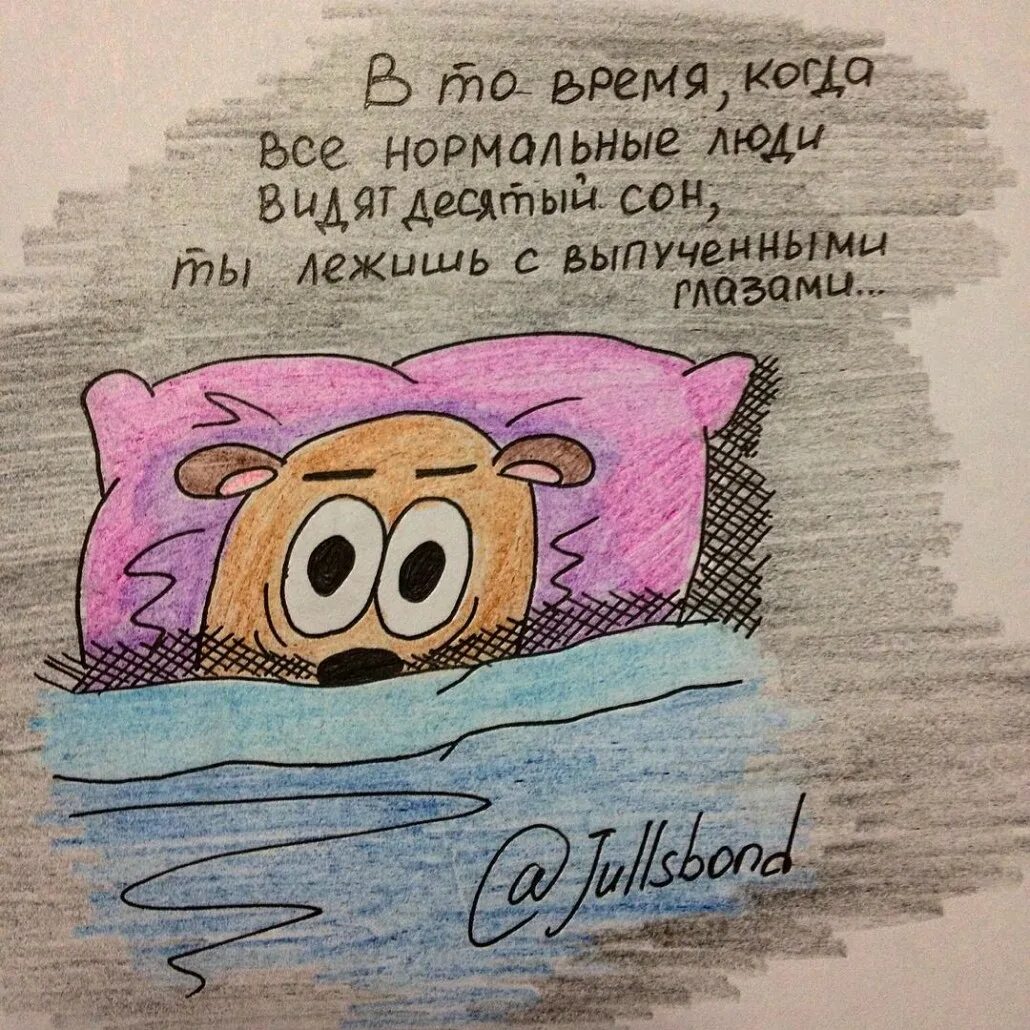 В то время, когда
все нормальные люди
видят десятый сон,
ты лежишь с выпученными
глазами...
@Jullsbond